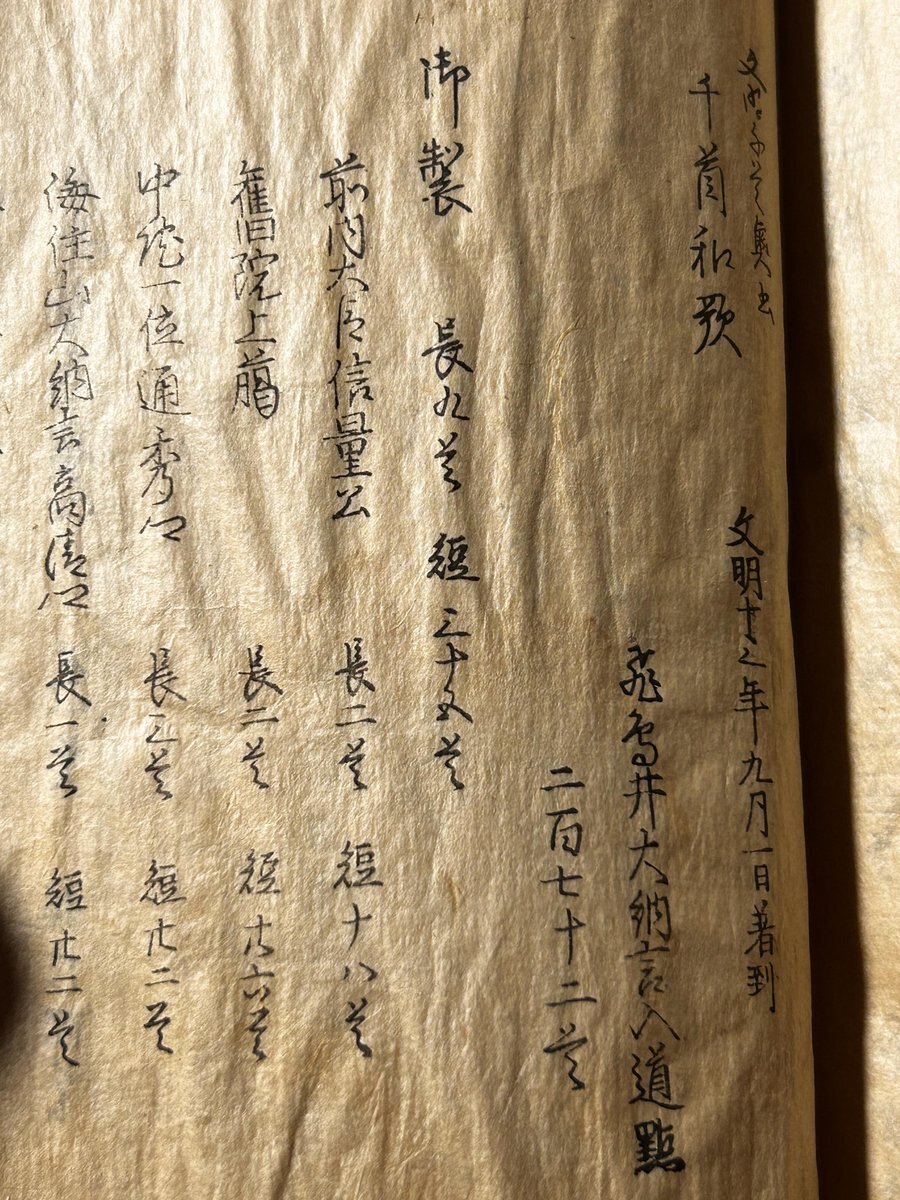 文明千首奥書 文明十三年九月一日著到
千首和歌
飛鳥井大納言入道點
二百七十二首
御製 長九首 短三十五首
前内大臣信量公 長二首 短十八首
舊院上臈 長二首 短廿六首
中院一位通秀卿 長三首 短廿二首
海住山大納言高清卿 長一首 短廿二首